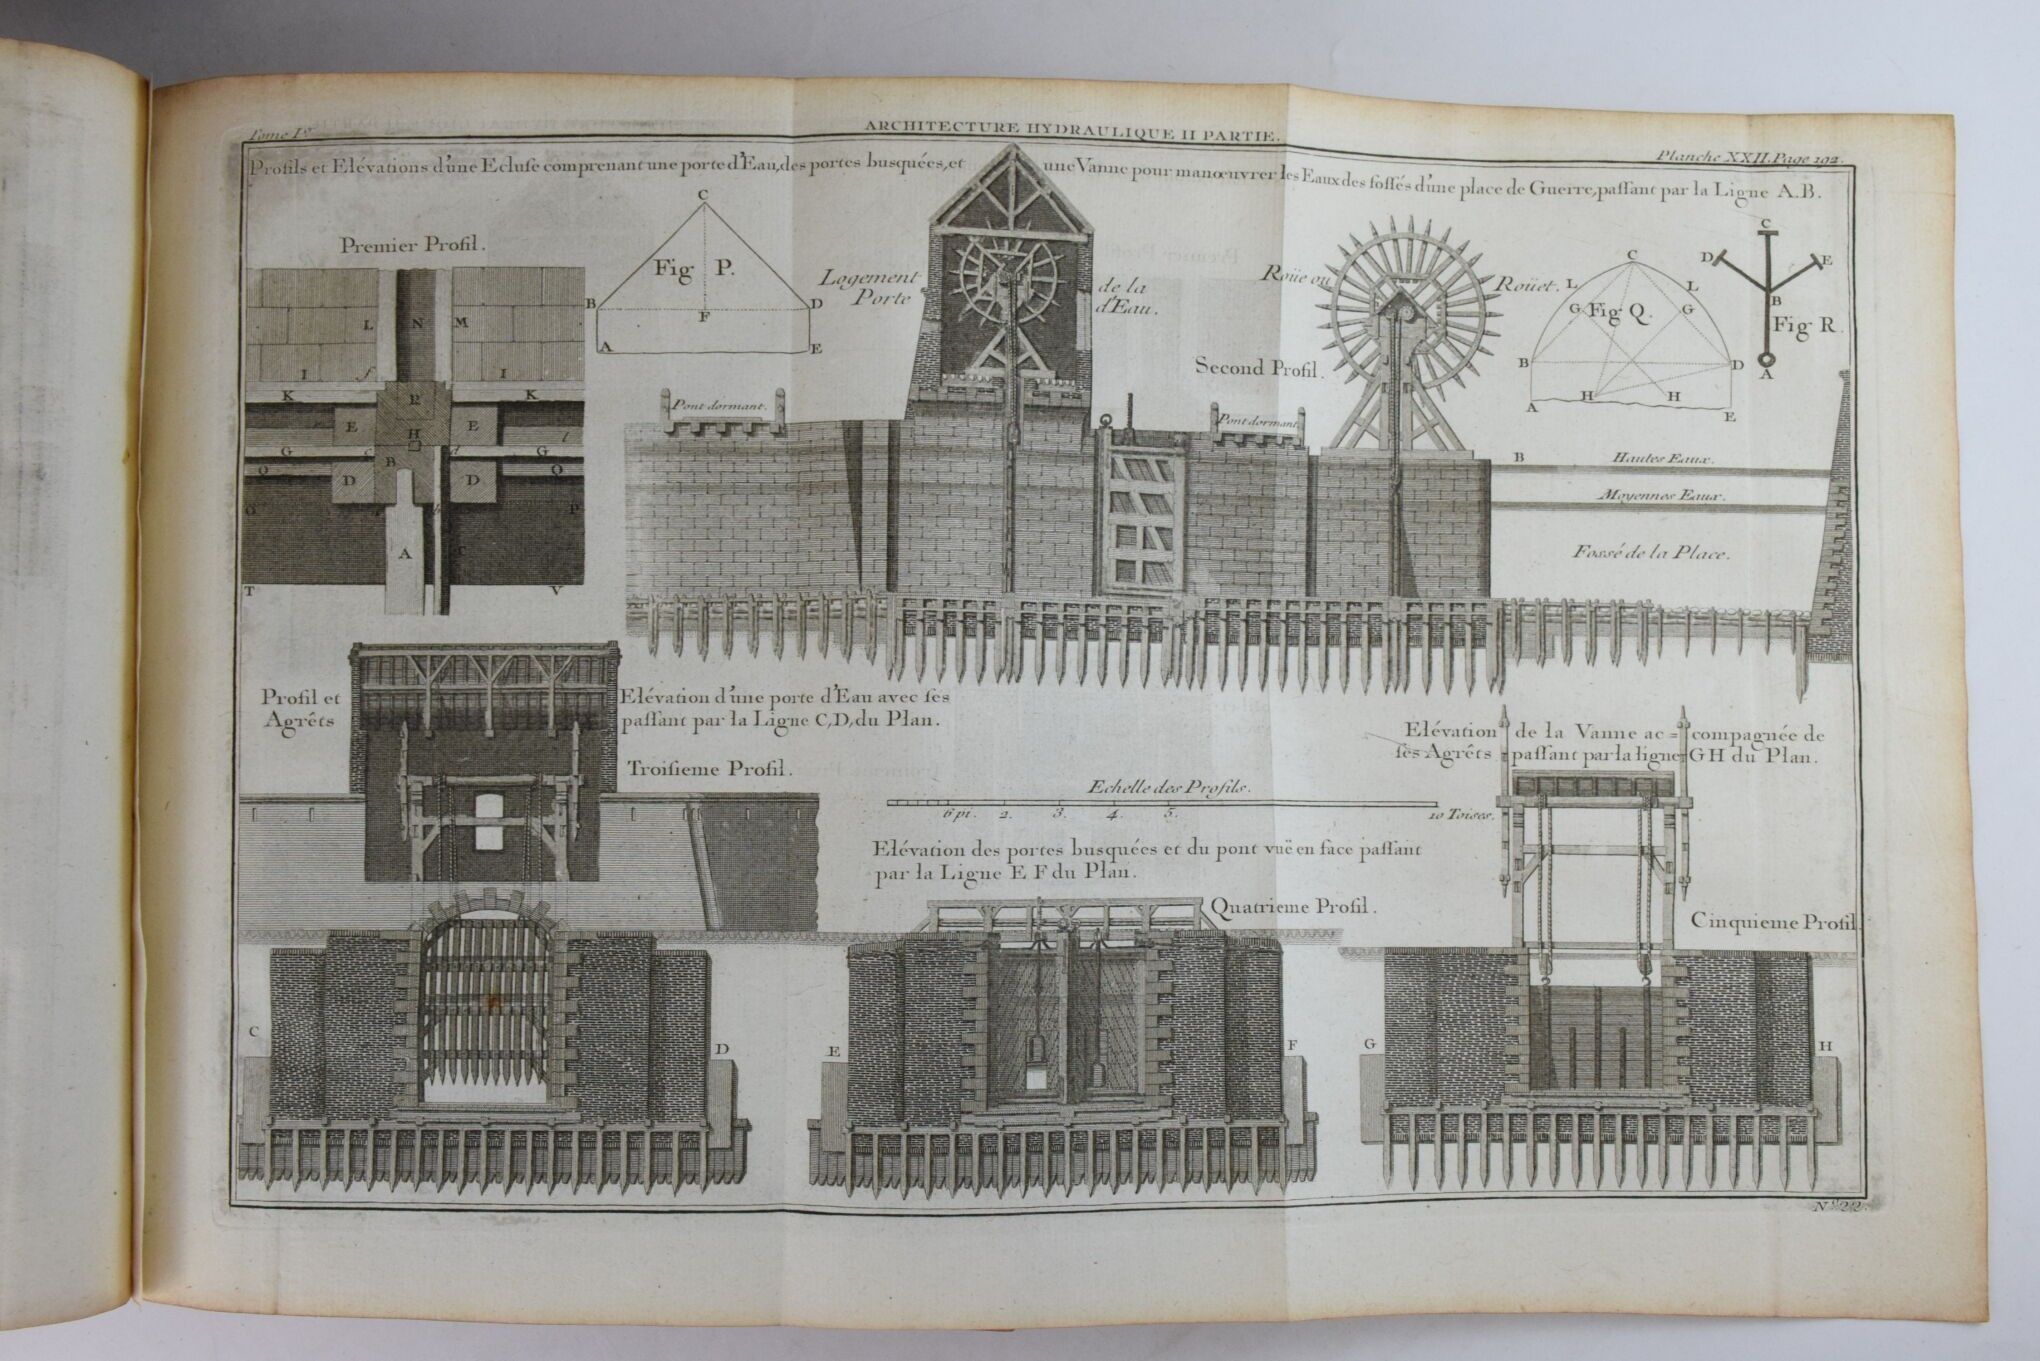 Tome I.
ARCHITECTURE HYDRAULIQUE II PARTIE.
Planche XXII. Page 192.
Profils et Elévations d'une Ecluse comprenant une porte d'Eau, des portes busquées, et une Vanne pour manœuvrer les Eaux des fossés d'une place de Guerre, passant par la Ligne A.B.
Premier Profil.
L N M
I f I
K R K
E H E
G c d G l
Q B Q
D D
O P
A
T V
C
Fig P.
B F D
A E
Logement de la
Porte d'Eau.
Roüe ou Roüet.
Second Profil.
Pont dormant.
Pont dormant.
C
L L
G Fig Q. G
B D
H H
A E
C
D E
B
Fig R.
A
B Hautes Eaux.
Moyennes Eaux.
Fossé de la Place.
Profil et Elévation d'une porte d'Eau avec ses
Agrêts passant par la Ligne C, D, du Plan.
Troisieme Profil.
Elévation de la Vanne ac=compagnée de
ses Agrêts passant par la ligne GH du Plan.
Echelle des Profils.
6 pi. 2. 3. 4. 5. 10 Toises.
Elévation des portes busquées et du pont vuë en face passant
par la Ligne E F du Plan.
Quatrieme Profil.
Cinquieme Profil.
C D
E F
G H
N.º 22.